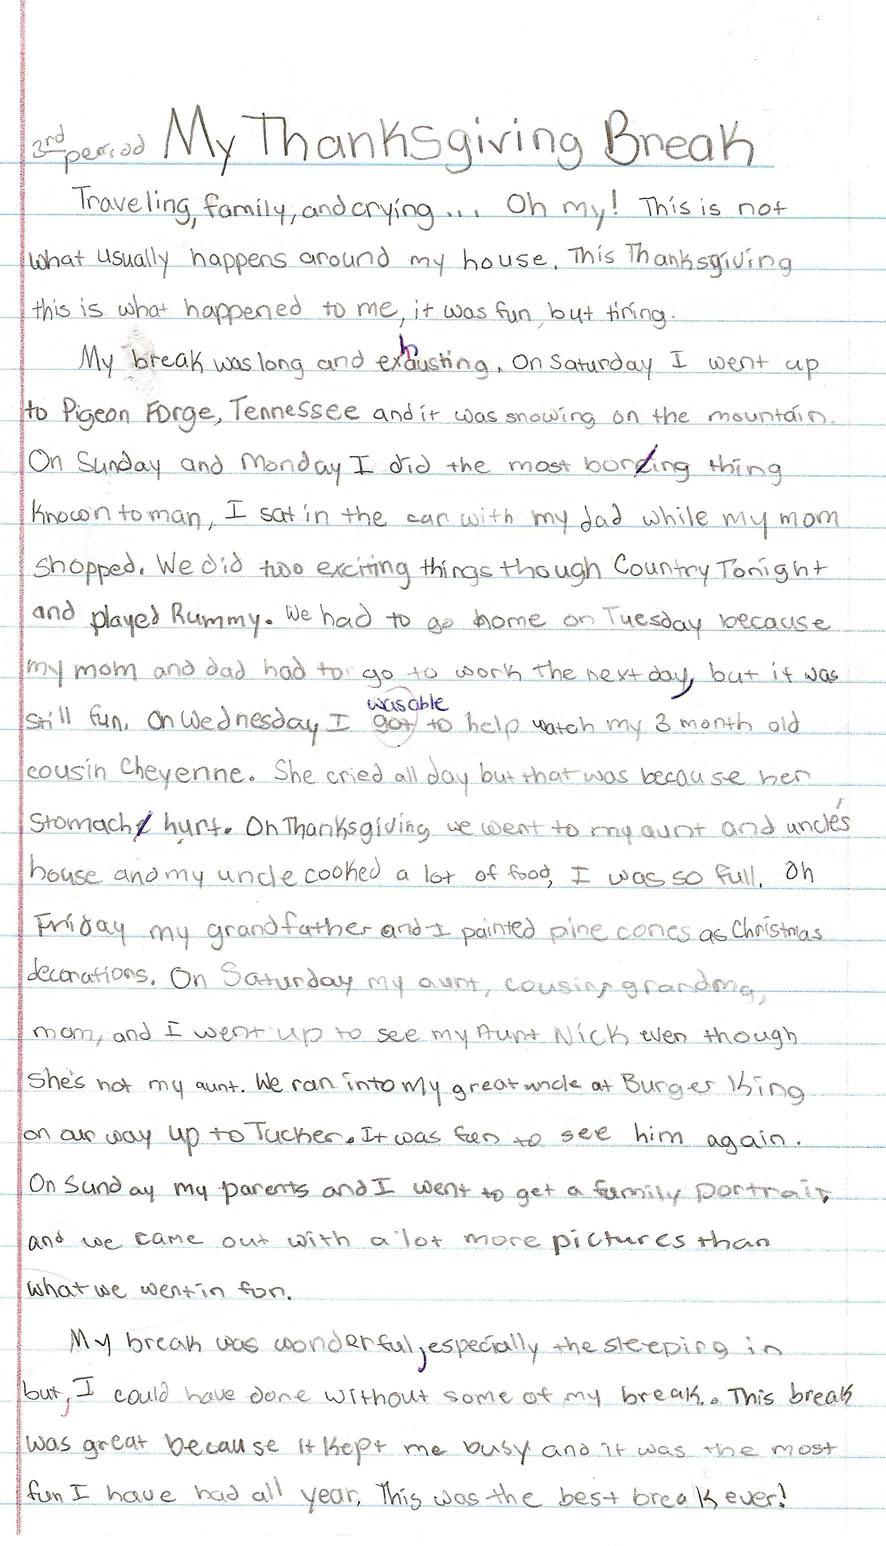 3rd period My Thanksgiving Break
Traveling, family, and crying... Oh my! This is not
what usually happens around my house. This Thanksgiving
this is what happened to me, it was fun, but tiring.
My break was long and exhausting. On Saturday I went up
to Pigeon Forge, Tennessee and it was snowing on the mountain.
On Sunday and Monday I did the most boring thing
known to man, I sat in the car with my dad while my mom
shopped. We did two exciting things though Country Tonight
and played Rummy. We had to go home on Tuesday because
my mom and dad had to go to work the next day, but it was
was able
still fun. On Wednesday I got to help watch my 3 month old
cousin Cheyenne. She cried all day but that was because her
stomach hurt. On Thanksgiving we went to my aunt and uncle's
house and my uncle cooked a lot of food, I was so full. On
Friday my grandfather and I painted pine cones as Christmas
decorations. On Saturday my aunt, cousins, grandma,
mom, and I went up to see my Aunt Nick even though
she's not my aunt. We ran into my great uncle at Burger King
on our way up to Tucker. It was fun to see him again.
On Sunday my parents and I went to get a family portrait,
and we came out with a lot more pictures than
what we went in for.
My break was wonderful, especially the sleeping in
but, I could have done without some of my break. This break
was great because it kept me busy and it was the most
fun I have had all year. This was the best break ever!